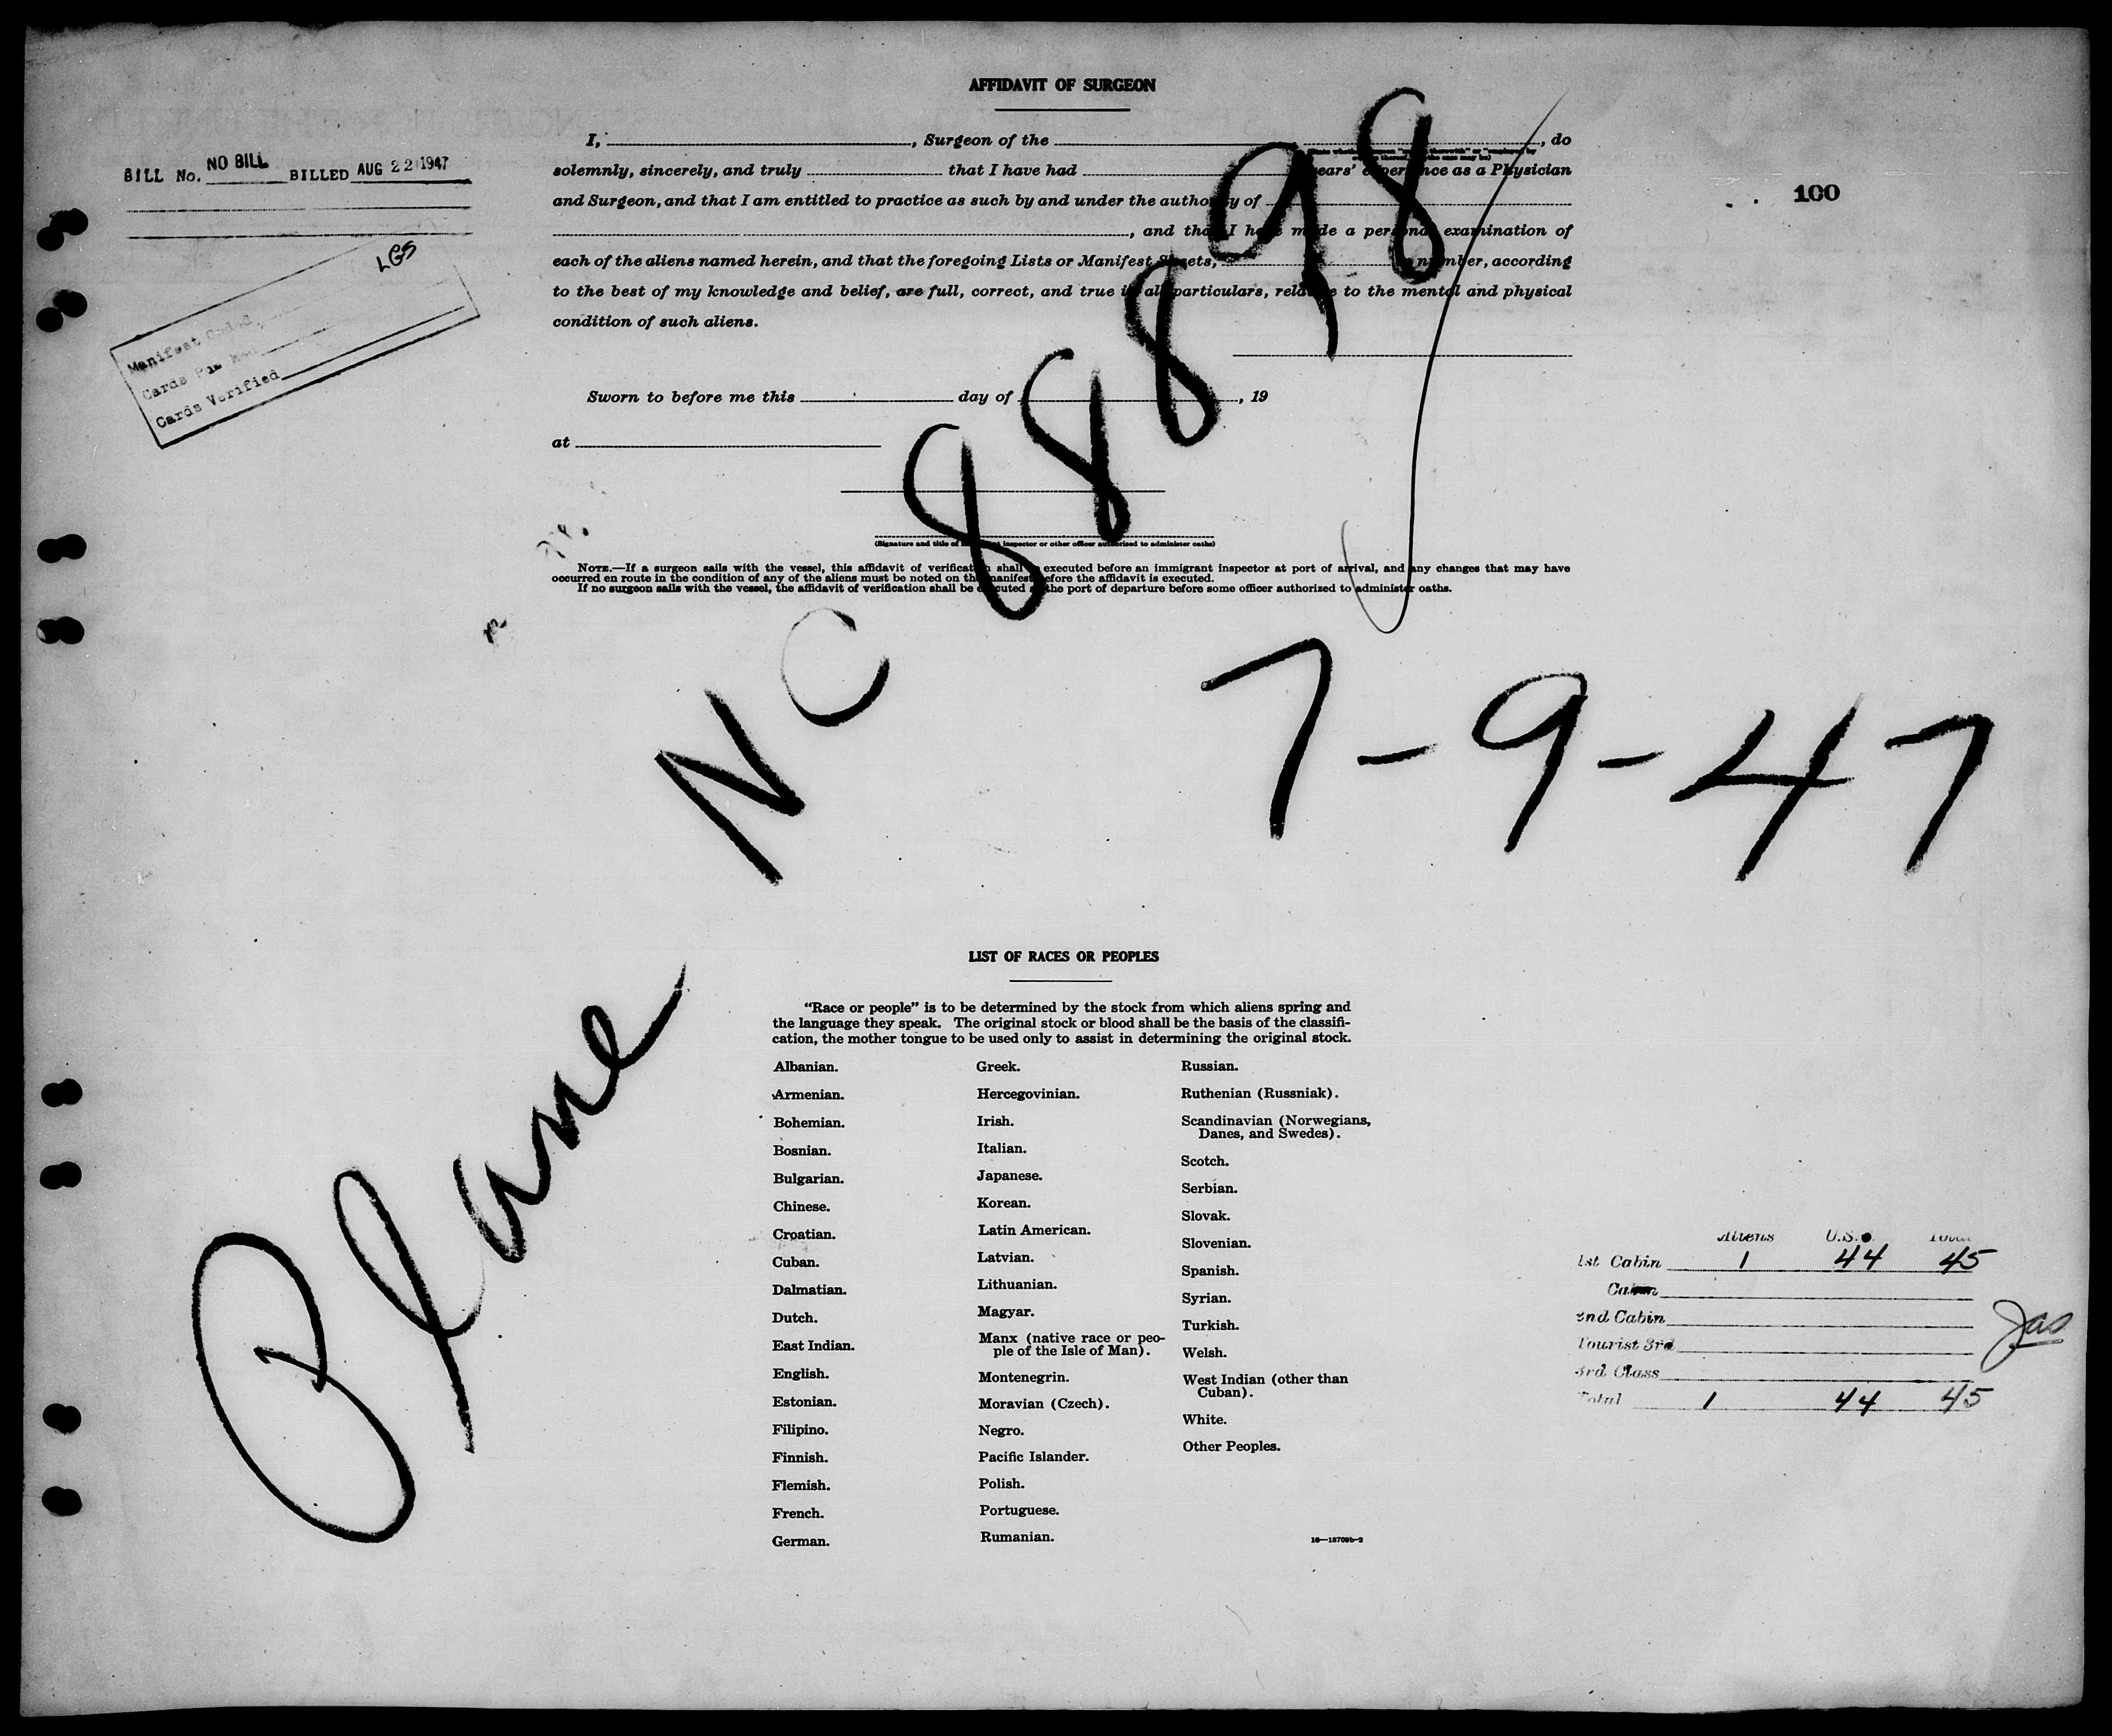 AFFIDAVIT OF SURGEON
I, , Surgeon of the , do
solemnly, sincerely, and truly that I have had years' experience as a Physician
and Surgeon, and that I am entitled to practice as such by and under the authority of
, and that I have made a personal examination of
each of the aliens named herein, and that the foregoing Lists or Manifest Sheets, in number, according
to the best of my knowledge and belief, are full, correct, and true in all particulars, relative to the mental and physical
condition of such aliens.
Sworn to before me this day of , 19
at
(Signature and title of immigrant inspector or other officer authorized to administer oaths)
NOTE.—If a surgeon sails with the vessel, this affidavit of verification shall be executed before an immigrant inspector at port of arrival, and any changes that may have
occurred en route in the condition of any of the aliens must be noted on the manifest before the affidavit is executed.
If no surgeon sails with the vessel, the affidavit of verification shall be executed at the port of departure before some officer authorized to administer oaths.
BILL No. NO BILL BILLED AUG 22 1947
LGS
Manifest
Cards
Cards Verified
100
Plane NC 88898
7-9-47
LIST OF RACES OR PEOPLES
"Race or people" is to be determined by the stock from which aliens spring and
the language they speak. The original stock or blood shall be the basis of the classifi-
cation, the mother tongue to be used only to assist in determining the original stock.
Albanian.
Armenian.
Bohemian.
Bosnian.
Bulgarian.
Chinese.
Croatian.
Cuban.
Dalmatian.
Dutch.
East Indian.
English.
Estonian.
Filipino.
Finnish.
Flemish.
French.
German.
Greek.
Hercegovinian.
Irish.
Italian.
Japanese.
Korean.
Latin American.
Latvian.
Lithuanian.
Magyar.
Manx (native race or peo-
ple of the Isle of Man).
Montenegrin.
Moravian (Czech).
Negro.
Pacific Islander.
Polish.
Portuguese.
Rumanian.
Russian.
Ruthenian (Russniak).
Scandinavian (Norwegians,
Danes, and Swedes).
Scotch.
Serbian.
Slovak.
Slovenian.
Spanish.
Syrian.
Turkish.
Welsh.
West Indian (other than
Cuban).
White.
Other Peoples.
16—18709b-2
Aliens U.S. Total
1st Cabin 1 44 45
Cabin
2nd Cabin
Tourist 3rd
3rd Class
Total 1 44 45
Jas